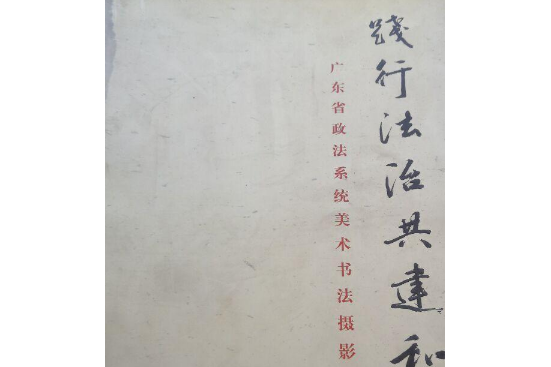 践行法治共建和
广东省政法系统美术书法摄影